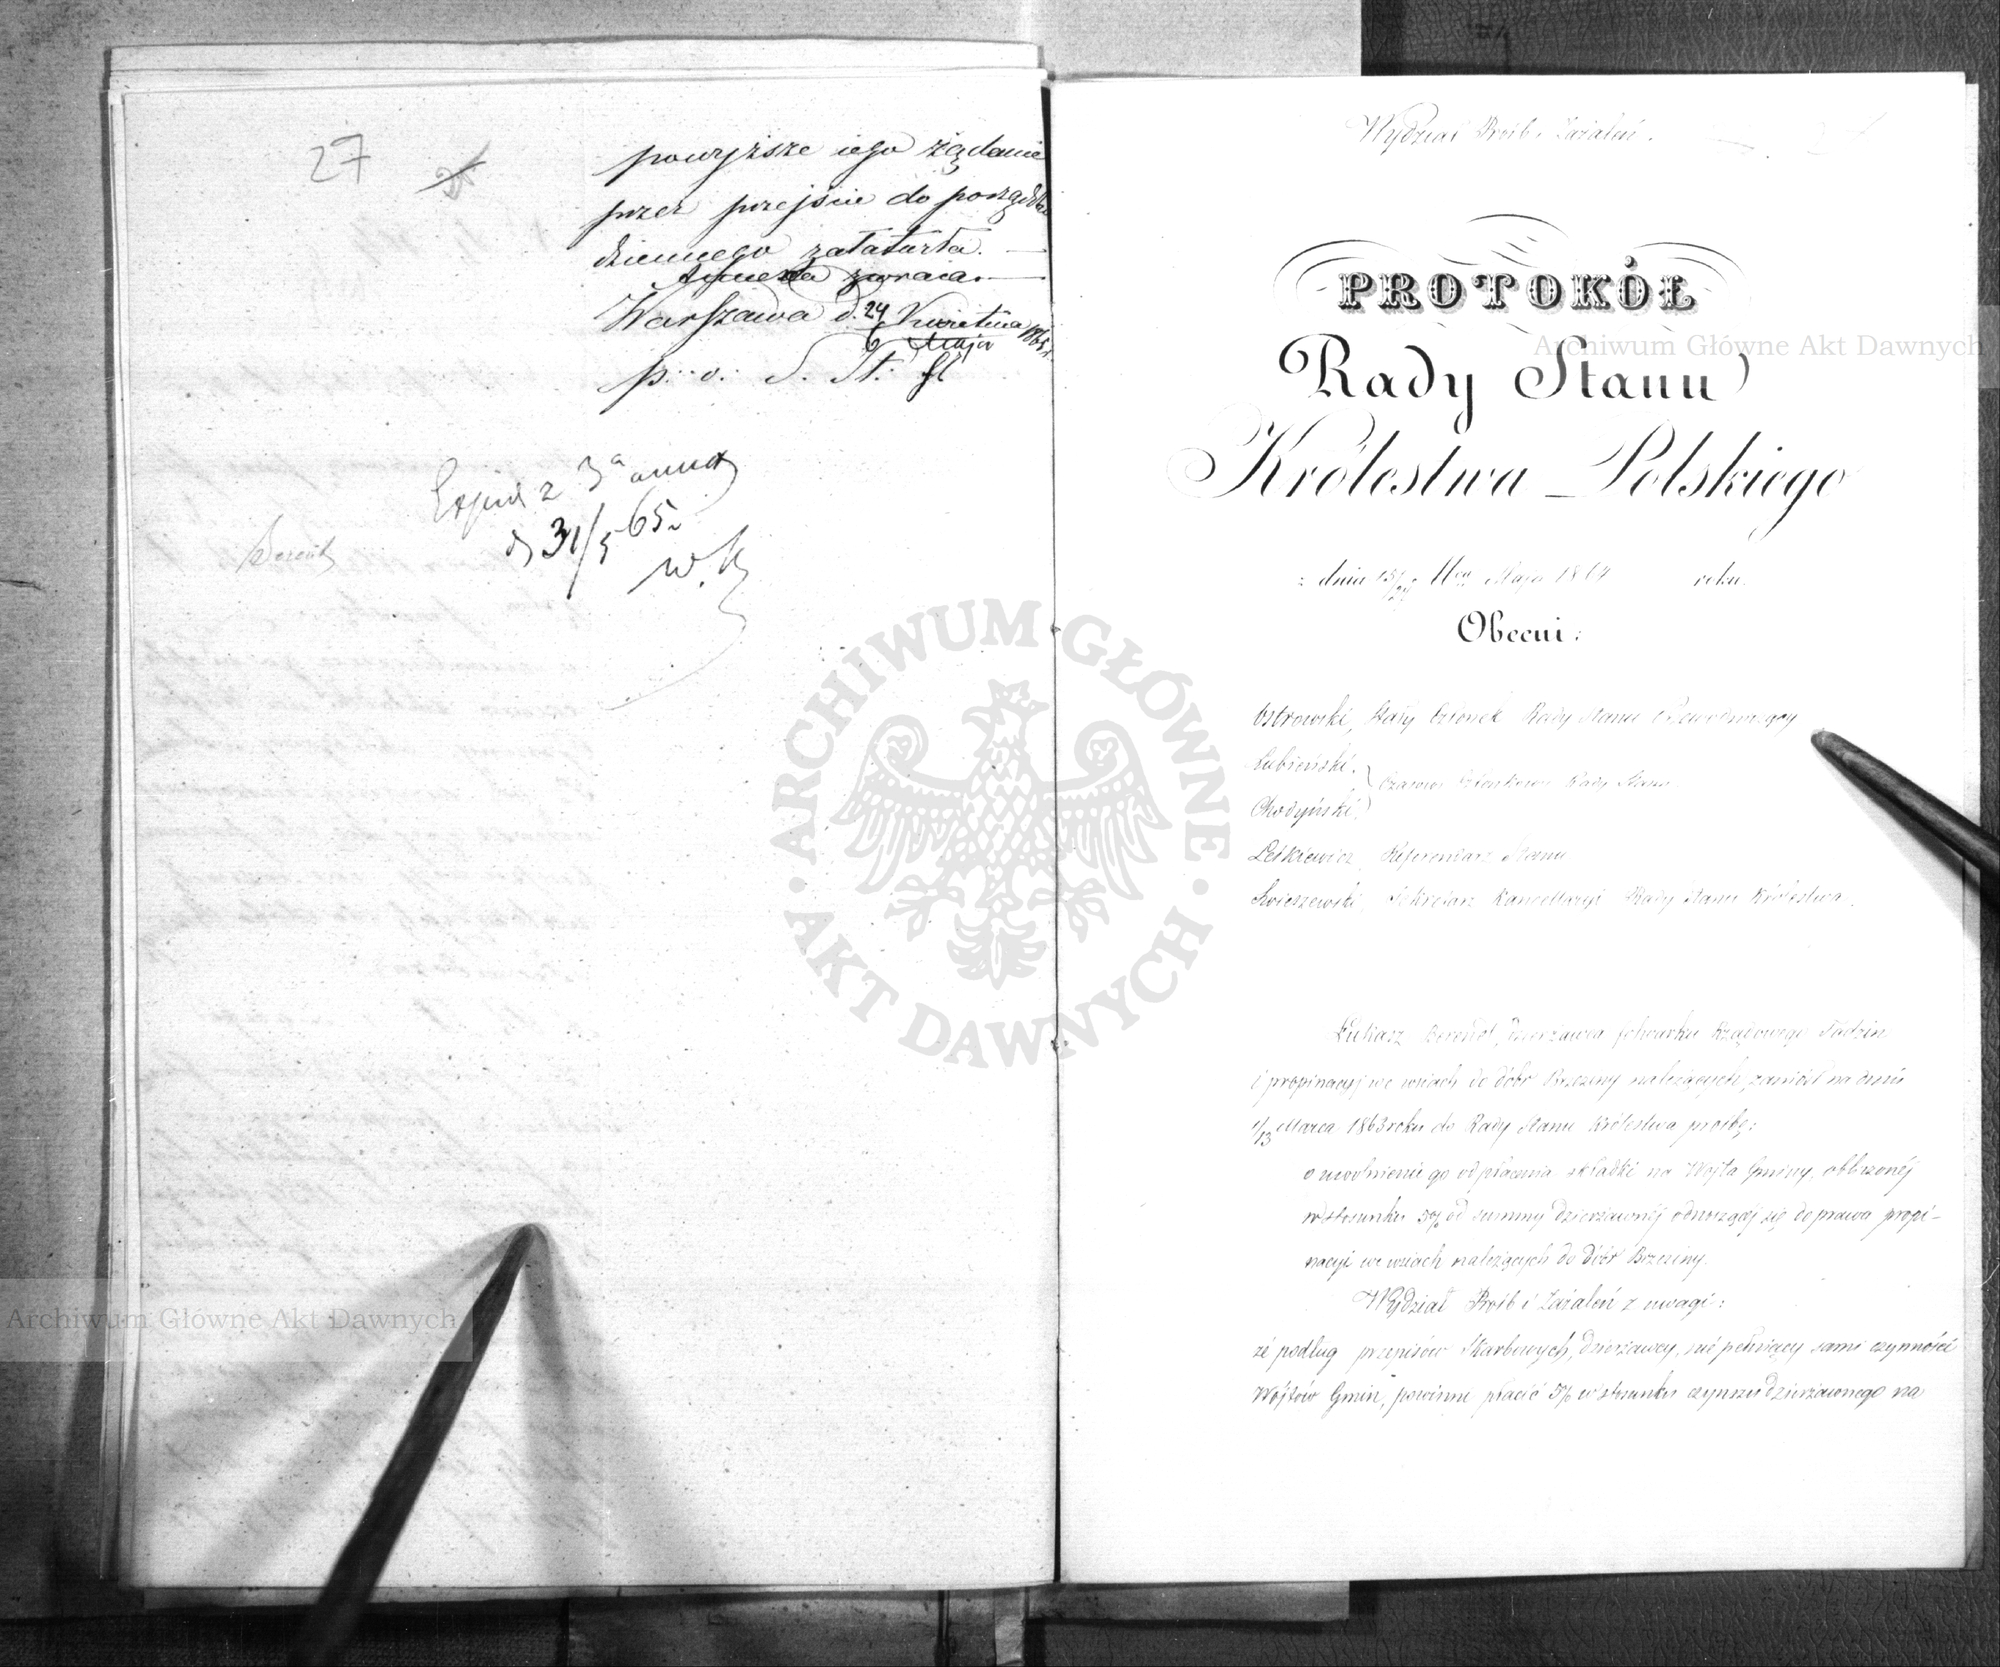 27
powyższe iego żądanie
przez przejście do porządku
dziennego załatwiła.
zwraca.
Warszawa d. 24 Kwietnia 1865 r.
6 Maja
p. o. S. St.
z 3ª
d 31/5 65
w.
Wydział Próśb i Zażaleń.
PROTOKÓŁ
Rady Stanu
Królestwa Polskiego
z dnia Maja 1864 roku.
Obecni:
Ostrowski, Stały Członek Rady Stanu Przewodniczący
Łubieński.
Czasowi Członkowie Rady Stanu
Chodyński.
Letkiewicz, Referendarz Stanu
Swieszewski, Sekretarz Kancellaryi Rady Stanu Królestwa.
Łukasz Berendt, Dzierżawca folwarku Rządowego Tadzin
i propinacyj we wsiach do dóbr Brzeziny należących, zaniósł na dniu
1/13 Marca 1863 roku do Rady Stanu Królestwa prośbę:
o uwolnienie go od płacenia składki na Wójta Gminy, obliczonéj
w stosunku 5% od summy dzierżawnéj odnoszącéj się do prawa propi-
nacyi we wsiach należących do dóbr Brzeziny.
Wydział Próśb i Zażaleń z uwagi:
że podług przepisów Skarbowych, dzierżawcy, nie pełniący sami czynności
Wójtów Gmin, powinni płacić 5% w stosunku czynszu dzierżawnego na
Archiwum Główne Akt Dawnych
ARCHIWUM GŁÓWNE AKT DAWNYCH
Archiwum Główne Akt Dawnych